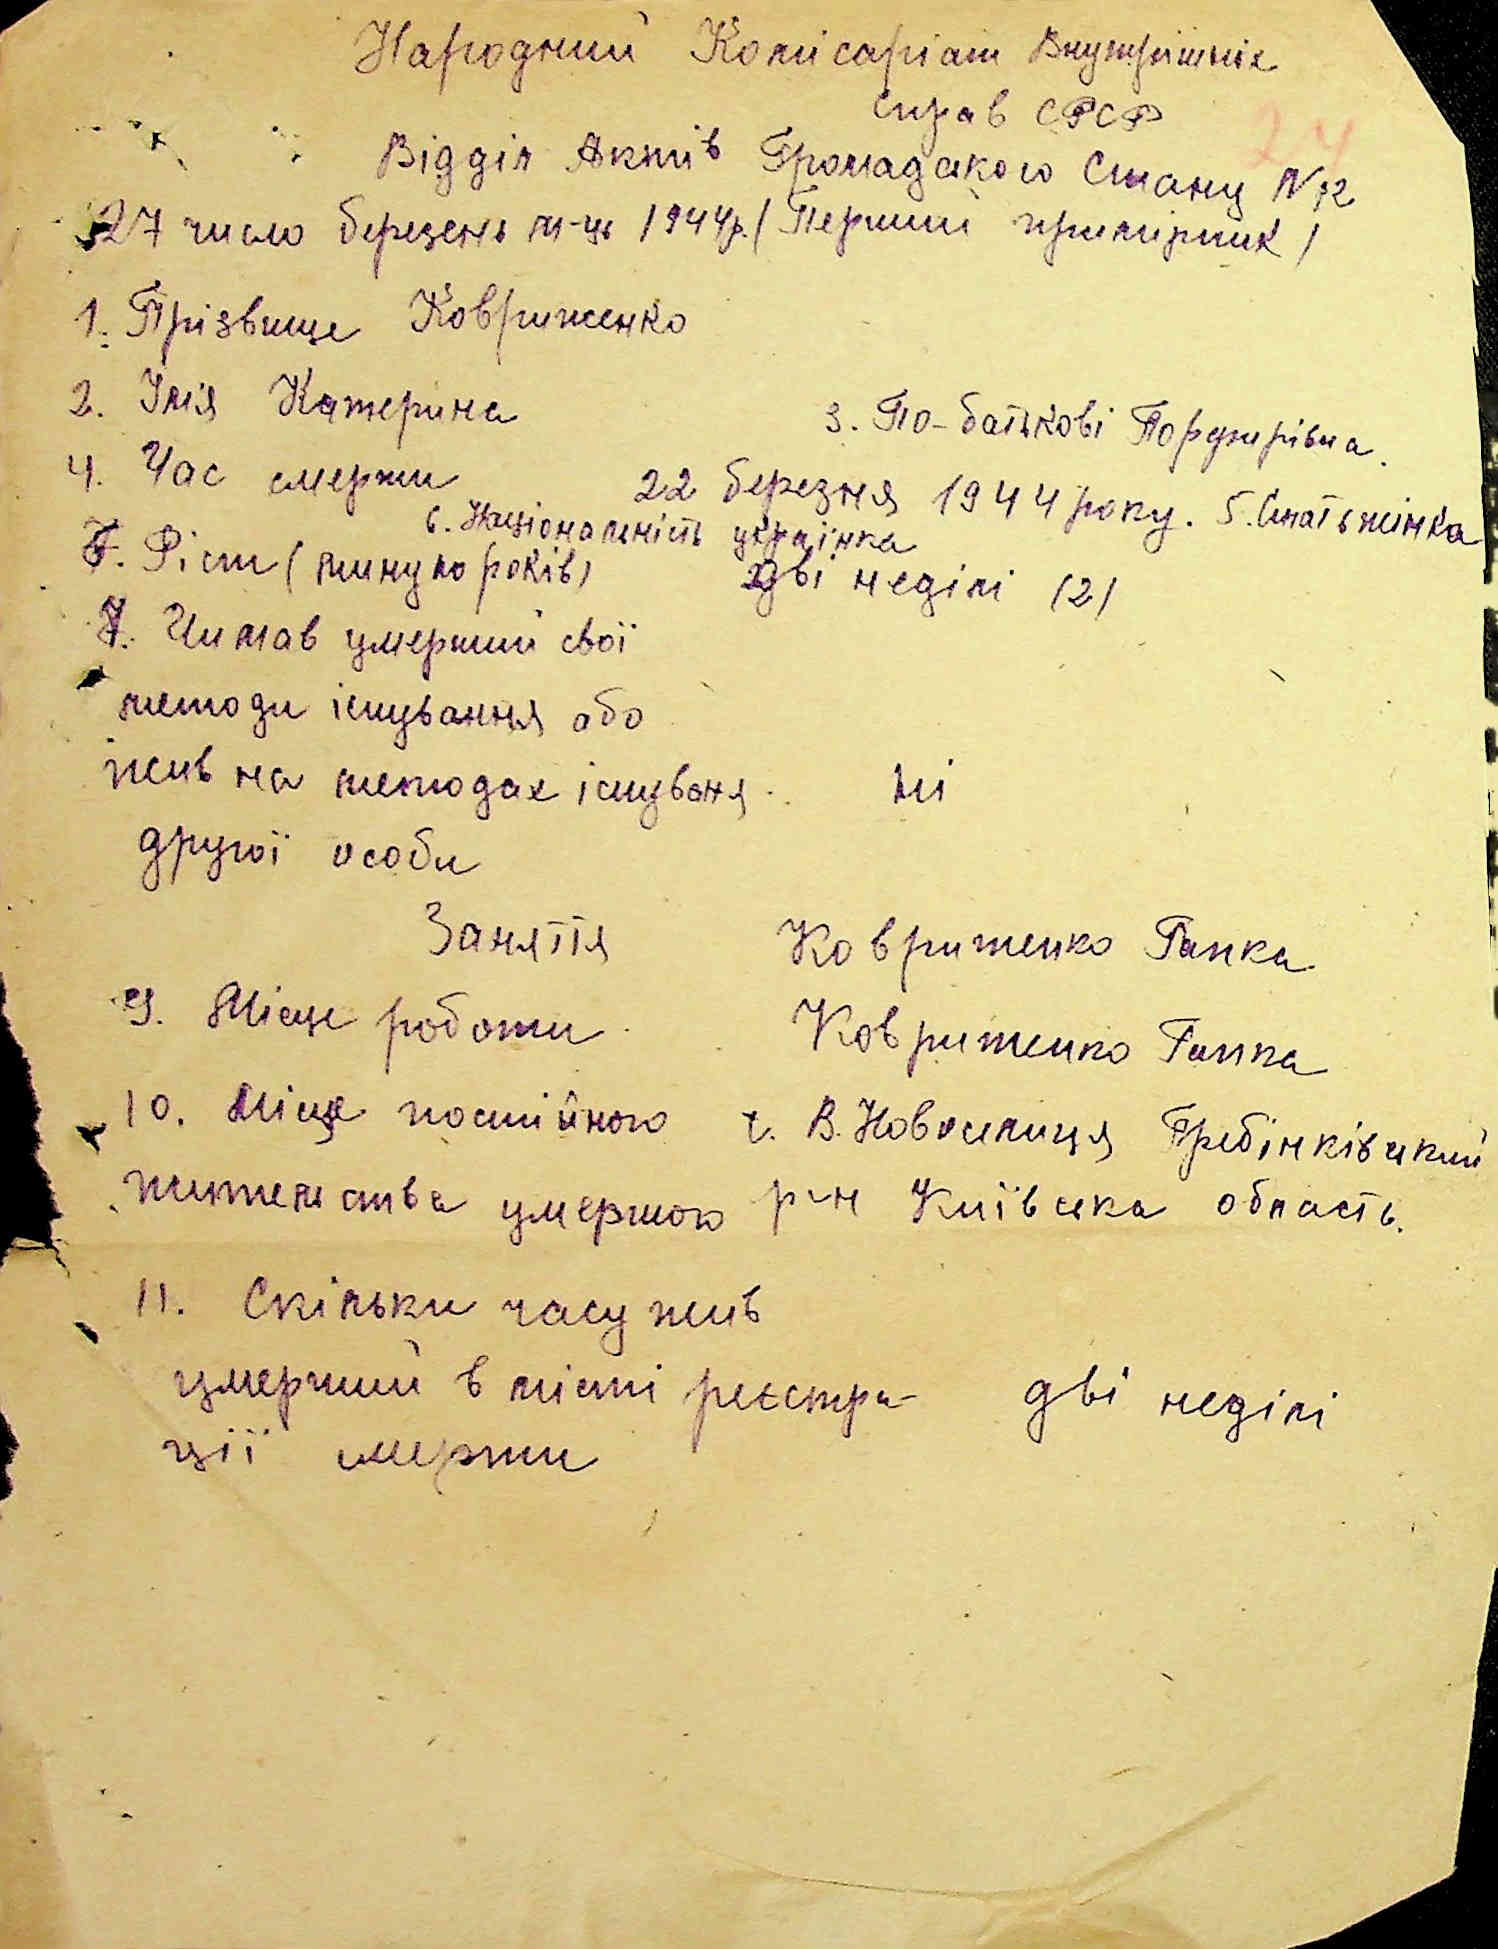 Народний Комісаріат Внутрішніх
Справ СРСР
24
Відділ Актів Громадського Стану N 12
27 число березень м-ць 1944р. (Перший примірник)
1. Прізвище Ковриженко
2. Імія Катерина
3. По-батькові Порфирівна.
4. Час смерти 22 березня 1944 року. 5. Стать жінка
6. Національність українка
7. Ріст (минуло років) дві неділі (2)
Чи мав умерший свої
методи існування або
жив на методах існуваня ні
другої особи
Заняття Ковриженко Гапка
9. Місце роботи Ковриженко Гапка
10. Місце постійного с. В. Новоселиця Гребінківський
жительства умершого р-н Київська область.
11. Скільки часу жив
умерший в місті реєстра- дві неділі
ції смерти